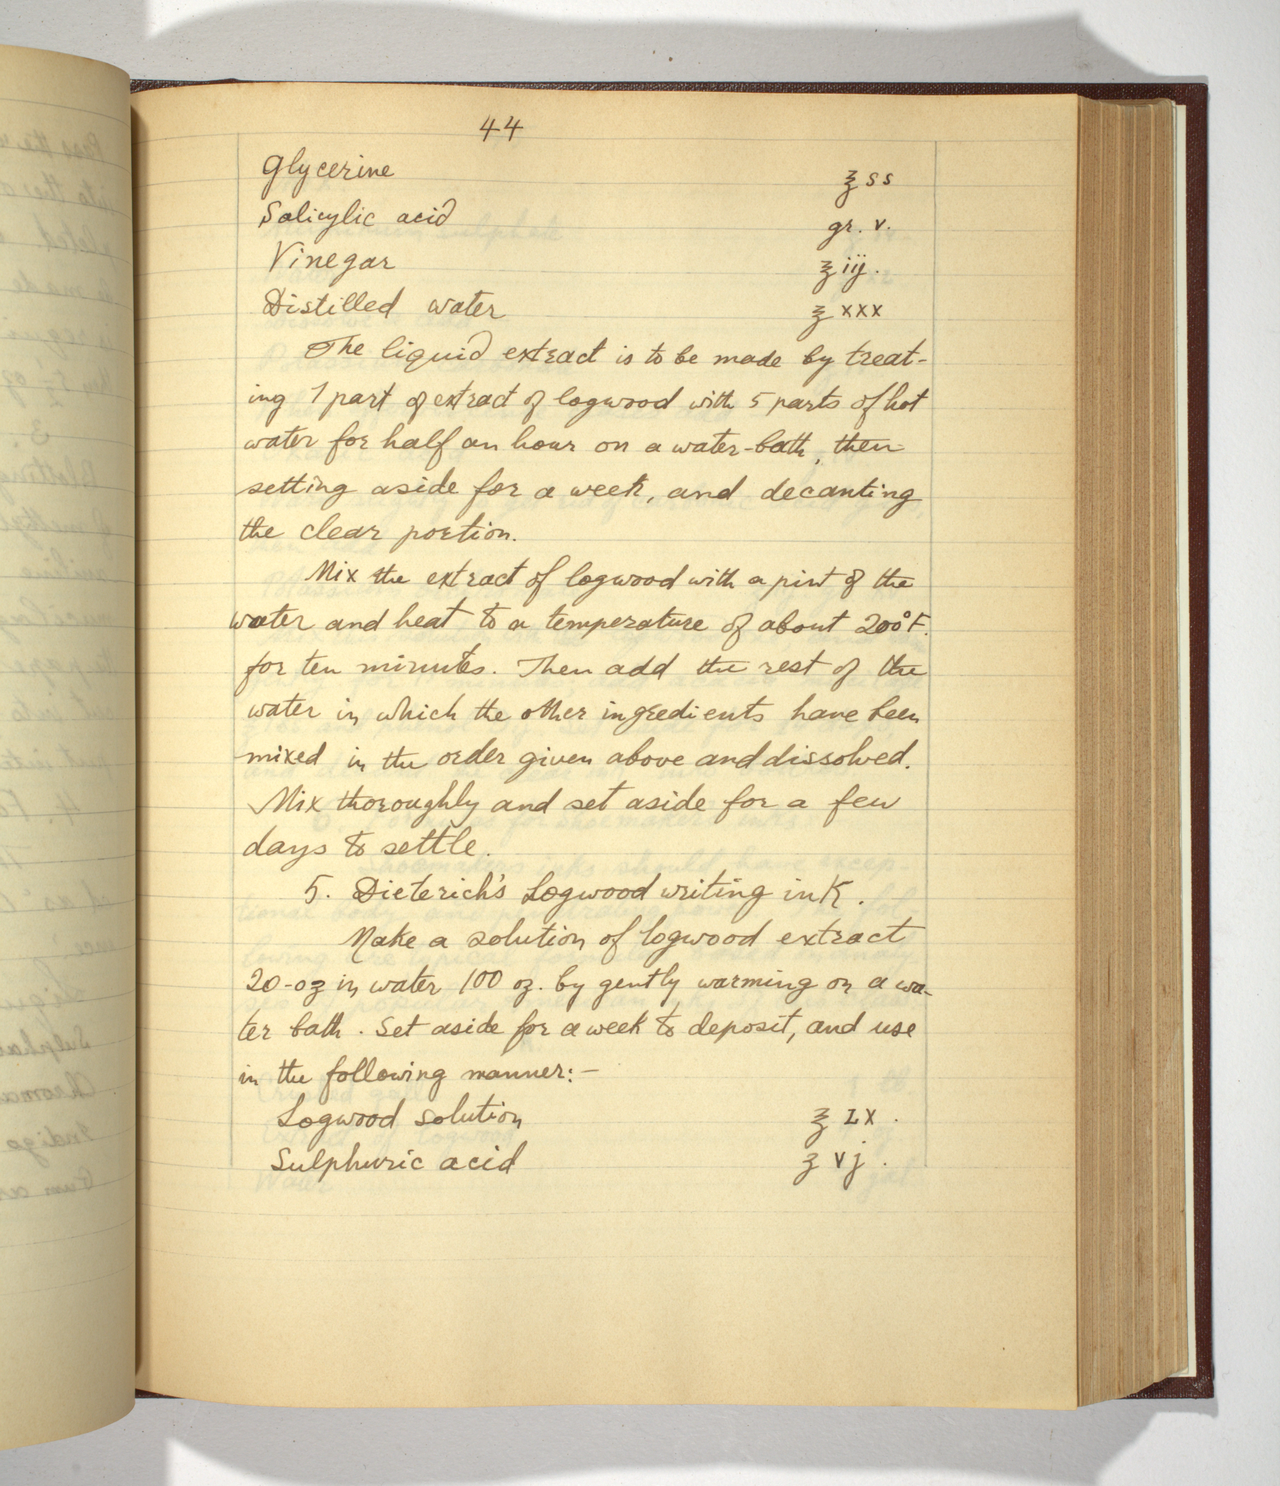 44
Glycerine ℥ss
Salicylic acid gr. v.
Vinegar ℥iij.
Distilled water ℥xxx
The liquid extract is to be made by treat-
ing 1 part of extract of logwood with 5 parts of hot
water for half an hour on a water-bath, then
setting aside for a week, and decanting
the clear portion.
Mix the extract of logwood with a pint of the
water and heat to a temperature of about 200°F.
for ten minutes. Then add the rest of the
water in which the other ingredients have been
mixed in the order given above and dissolved.
Mix thoroughly and set aside for a few
days to settle.
5. Dieterich's Logwood writing ink.
Make a solution of logwood extract
20-oz in water 100 oz. by gently warming on a wa-
ter bath. Set aside for a week to deposit, and use
in the following manner:-
Logwood solution ℥ LX.
Sulphuric acid ʒ vj.